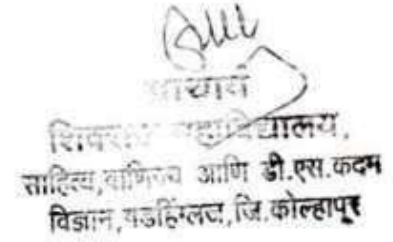 प्राचार्य
शिवराज महाविद्यालय,
साहित्य,वाणिज्य आणि डी.एस.कदम
विज्ञान,गडहिंग्लज,जि.कोल्हापूर